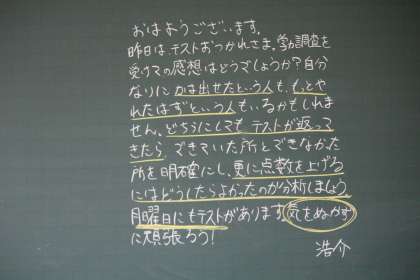 おはようございます。
昨日は、テストおつかれさま。学力調査を
受けての感想はどうでしょうか?自分
なりに力は出せたという人も、もっとや
れたはずという人もいるかもしれま
せん。どちらにしてもテストが返って
きたら、できていた所とできなかった
所を明確にし、更に点数を上げる
にはどうしたらよかったのか分析しましょう。
月曜日にもテストがあります。気をぬかず
に頑張ろう!
浩介